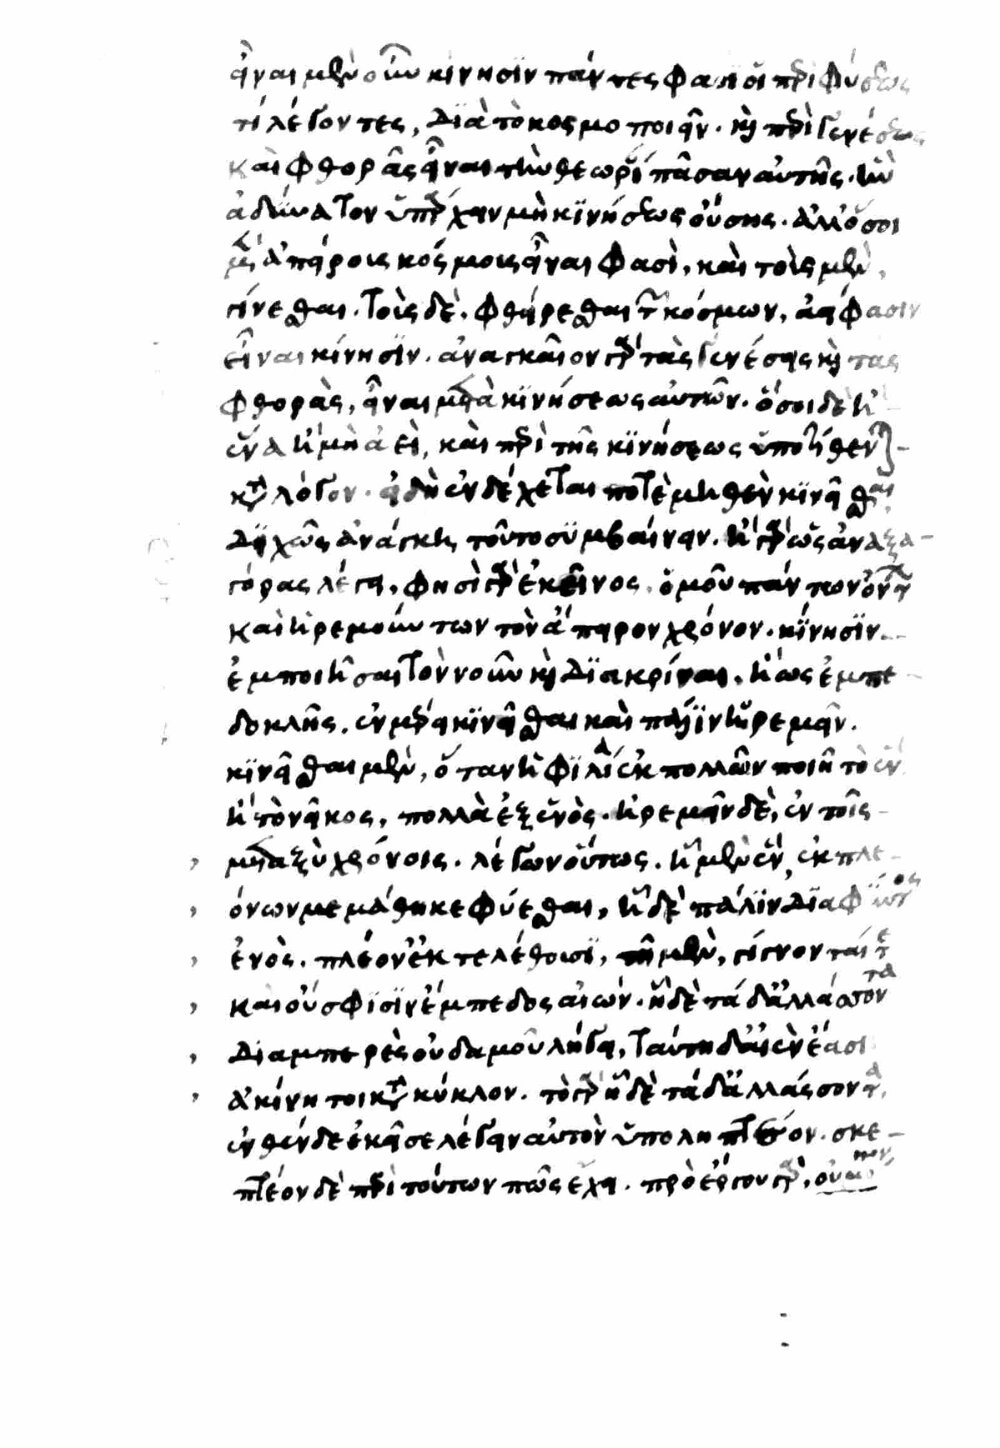 εἶναι μὲν οὖν κίνησϊν πάντες φασϊν οἱ περὶ φύσεως
τί λέγοντες, διὰ τὸ κοσμοποιεῖν. καὶ περὶ γενέσεως
καὶ φθορᾶς εἶναι τὴν θεωρίαν πᾶσαν αὐτῆς. ἣν
ἀδύνατον ὑπάρχειν μὴ κϊνήσεως οὔσης. ἀλλ' ὅσοι
μὲν ἀπείρους κόσμους εἶναι φασὶ, καὶ τοὺς μὲν,
γίνεσθαι. τοὺς δὲ. φθείρεσθαι τῶν κόσμων, ἀεί φασιν
εἶναι κίνησϊν. ἀναγκαῖον γὰρ τὰς γενέσεις καὶ τὰς
φθορὰς, εἶναι μετὰ κϊνήσεως αὐτῶν. ὅσοι δὲ ἢ
ἕνα ἢ μὴ ἀεὶ, καὶ περὶ τῆς κϊνήσεως ὑποτίθενται
κατὰ λόγον. εἰ δὴ ἐνδέχεταί ποτὲ μηθὲν κϊνεῖσθαι,
διχῶς ἀνάγκη τοῦτο συμβαίνειν. ἢ γὰρ ὡς ἀναξα-
γόρας λέγει. φησὶ γὰρ ἐκεῖνος. ὁμοῦ πάντων ὄντων
καὶ ἠρεμούντων τὸν ἄπειρον χρόνον. κίνησϊν
ἐμποιῆσαι τὸν νοῦν καὶ διακρίναι. ἢ ὡς ἐμπε-
δοκλῆς. ἐν μέρει κϊνεῖσθαι καὶ πάλϊν ἠρεμεῖν.
κϊνεῖσθαι μὲν, ὅταν ἡ φϊλία ἐκ πολλῶν ποιῆ τὸ ἓν
ἢ τὸ νεῖκος, πολλὰ ἐξ ἑνὸς. ἠρεμεῖν δὲ, ἐν τοῖς
μεταξὺ χρόνοις. λέγων οὕτως. ἧ μὲν ἓν, ἐκ πλε-
όνων μεμάθηκε φύεσθαι, ἠ δὲ πάλϊν διαφύντος
ἑνὸς. πλέον' ἐκτελέθουσϊ, τῆ μὲν, γίγνονταί τε
καὶ οὔ σφϊσϊν ἔμπεδος αἰών. ἧ δὲ τάδ' ἀλλάσσοντα
διαμπερὲς οὐδαμοῦ λήγει, ταύτη δ' αἰὲν ἔασι
ἀκίνητοι κατὰ κύκλον. τὸ γὰρ ἧ δὲ τάδ' ἀλλάσσοντα,
ἐνθένδε ἐκεῖσε λέγειν αὐτὸν ὑποληπτέον. σκε-
πτέον δὲ περὶ τούτων πῶς ἔχει. πρὸ ἔργου γὰρ, οὐ μόνον